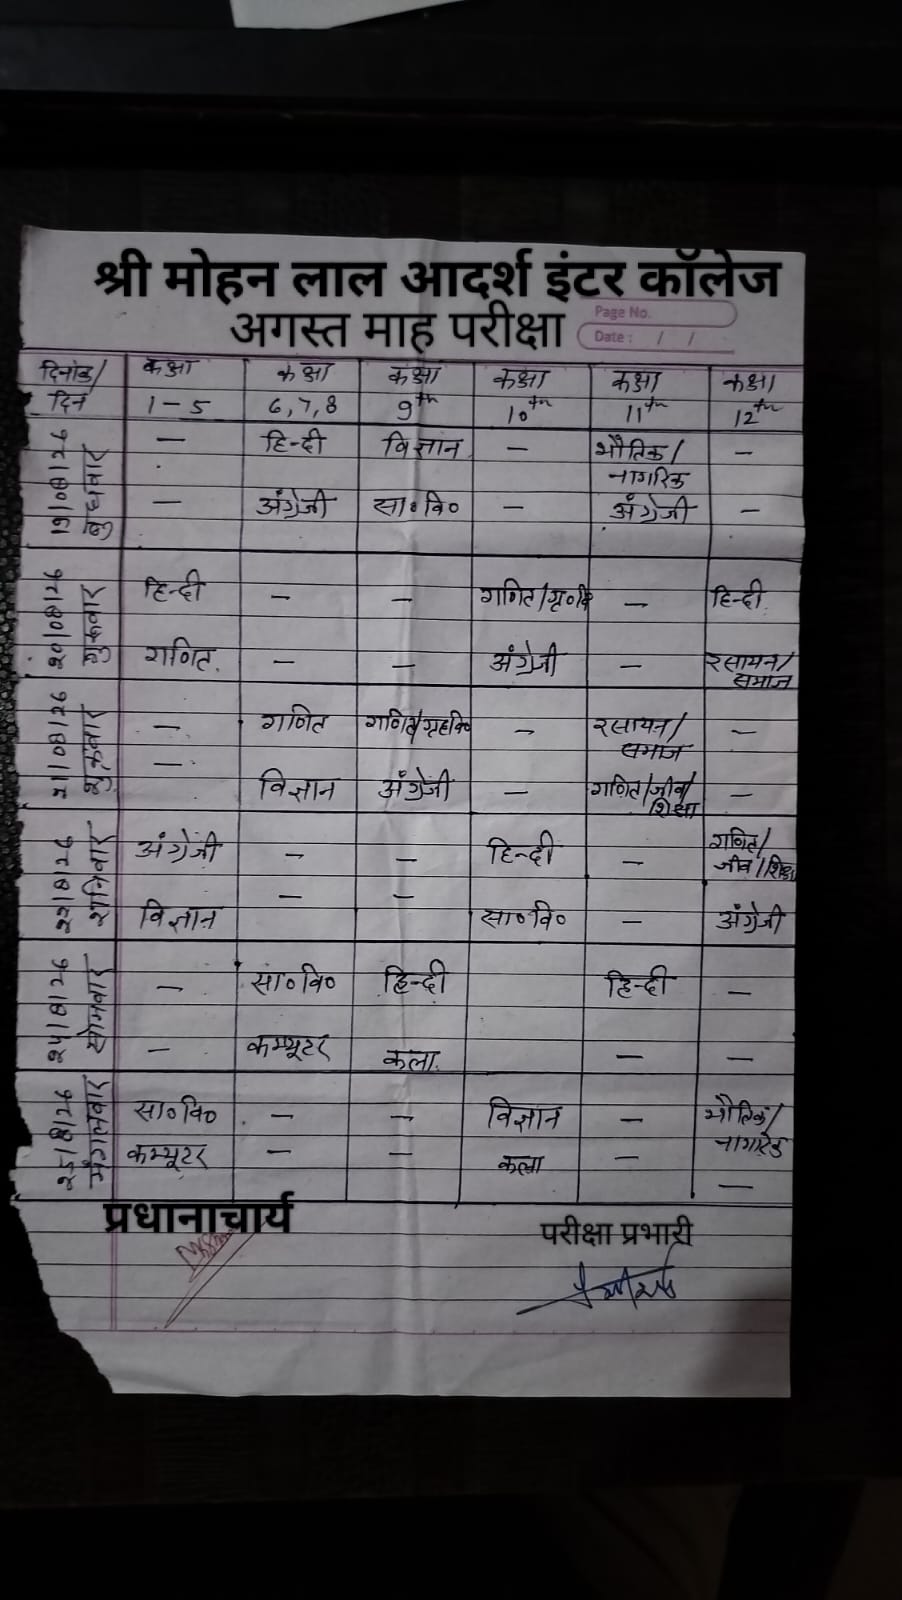 श्री मोहन लाल आदर्श इंटर कॉलेज
अगस्त माह परीक्षा
Page No.
Date : / /
दिनांक/ कक्षा कक्षा कक्षा कक्षा कक्षा कक्षा
दिन 1-5 6,7,8 9th 10th 11th 12th
19/08/26 बुधवार
— हिन्दी विज्ञान — भौतिक/ —
नागरिक
— अंग्रेजी सा०वि० — अंग्रेजी —
20/08/26
हिन्दी — — गणित/गृ०वि — हिन्दी
गणित — — अंग्रेजी — रसायन/
समाज
21/08/26 शुक्रवार
— गणित गणित/गृहवि० — रसायन/ —
समाज
— विज्ञान अंग्रेजी — गणित/जीव/ —
शिक्षा
22/8/26 शनिवार
अंग्रेजी — — हिन्दी — गणित/
जीव/शिक्षा
— —
विज्ञान सा०वि० — अंग्रेजी
24/8/26 सोमवार
— सा०वि० हिन्दी हिन्दी —
— कम्प्यूटर कला — —
25/8/26 मंगलवार
सा०वि० — — विज्ञान — भौतिक/
नागरिक
कम्प्यूटर — — कला — —
प्रधानाचार्य
परीक्षा प्रभारी